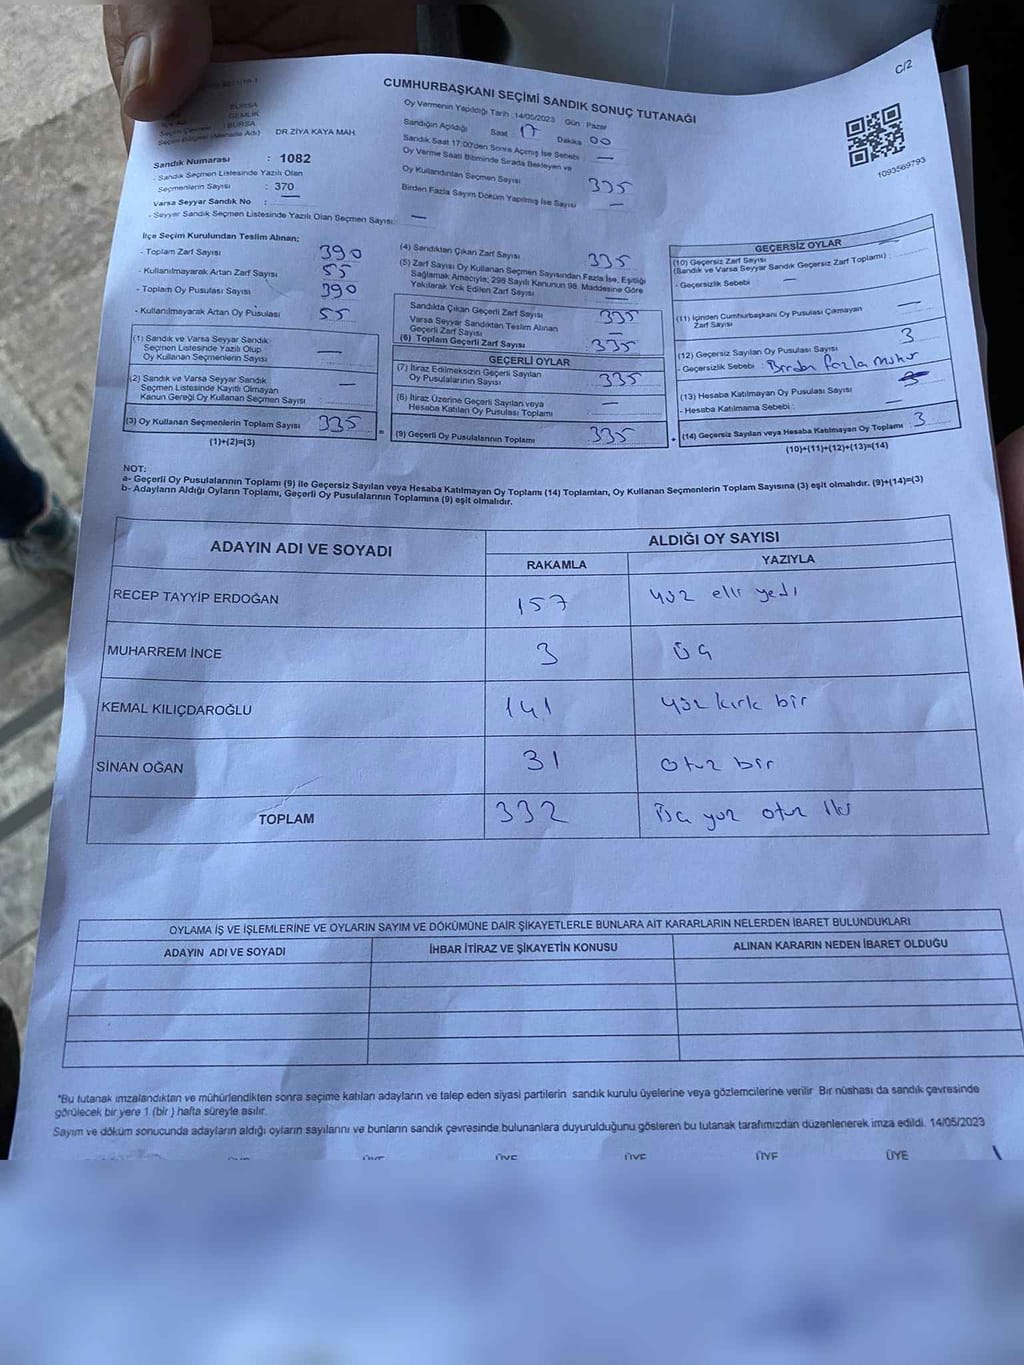 C/2
CUMHURBAŞKANI SEÇİMİ SANDIK SONUÇ TUTANAĞI
BURSA
GEMLİK
BURSA
Seçim Bölgesi (Mahalle Adı) DR.ZİYA KAYA MAH.
Sandık Numarası : 1082
- Sandık Seçmen Listesinde Yazılı Olan
Seçmenlerin Sayısı : 370
Varsa Seyyar Sandık No : —
- Seyyar Sandık Seçmen Listesinde Yazılı Olan Seçmen Sayısı: —
Oy Vermenin Yapıldığı Tarih : 14/05/2023 Gün : Pazar
Sandığın Açıldığı Saat 17 Dakika 00
Sandık Saat 17:00'den Sonra Açılmış İse Sebebi —
Oy Verme Saati Bitiminde Sırada Bekleyen ve
Oy Kullandırılan Seçmen Sayısı 335
Birden Fazla Sayım Döküm Yapılmış İse Sayısı —
1093569793
İlçe Seçim Kurulundan Teslim Alınan;
- Toplam Zarf Sayısı 390
- Kullanılmayarak Artan Zarf Sayısı 55
- Toplam Oy Pusulası Sayısı 390
- Kullanılmayarak Artan Oy Pusulası 55
(1) Sandık ve Varsa Seyyar Sandık
Seçmen Listesinde Yazılı Olup
Oy Kullanan Seçmenlerin Sayısı —
(2) Sandık ve Varsa Seyyar Sandık
Seçmen Listesinde Kayıtlı Olmayan
Kanun Gereği Oy Kullanan Seçmen Sayısı —
(3) Oy Kullanan Seçmenlerin Toplam Sayısı 335
(1)+(2)=(3)
=
(4) Sandıktan Çıkan Zarf Sayısı 335
(5) Zarf Sayısı Oy Kullanan Seçmen Sayısından Fazla İse, Eşitliği
Sağlamak Amacıyla; 298 Sayılı Kanunun 98. Maddesine Göre
Yakılarak Yok Edilen Zarf Sayısı —
Sandıkta Çıkan Geçerli Zarf Sayısı 335
Varsa Seyyar Sandıktan Teslim Alınan
Geçerli Zarf Sayısı —
(6) Toplam Geçerli Zarf Sayısı 335
GEÇERLİ OYLAR
(7) İtiraz Edilmeksizin Geçerli Sayılan
Oy Pusulalarının Sayısı 335
(8) İtiraz Üzerine Geçerli Sayılan veya
Hesaba Katılan Oy Pusulası Toplamı —
(9) Geçerli Oy Pusulalarının Toplamı 335
+
GEÇERSİZ OYLAR
(10) Geçersiz Zarf Sayısı
(Sandık ve Varsa Seyyar Sandık Geçersiz Zarf Toplamı) —
- Geçersizlik Sebebi : —
(11) İçinden Cumhurbaşkanı Oy Pusulası Çıkmayan
Zarf Sayısı —
(12) Geçersiz Sayılan Oy Pusulası Sayısı 3
- Geçersizlik Sebebi : Birden fazla mühür
(13) Hesaba Katılmayan Oy Pusulası Sayısı
- Hesaba Katılmama Sebebi : —
(14) Geçersiz Sayılan veya Hesaba Katılmayan Oy Toplamı 3
(10)+(11)+(12)+(13)=(14)
NOT:
a- Geçerli Oy Pusulalarının Toplamı (9) ile Geçersiz Sayılan veya Hesaba Katılmayan Oy Toplamı (14) Toplamları, Oy Kullanan Seçmenlerin Toplam Sayısına (3) eşit olmalıdır. (9)+(14)=(3)
b- Adayların Aldığı Oyların Toplamı, Geçerli Oy Pusulalarının Toplamına (9) eşit olmalıdır.
ADAYIN ADI VE SOYADI ALDIĞI OY SAYISI
RAKAMLA YAZIYLA
RECEP TAYYİP ERDOĞAN 157 yüz elli yedi
MUHARREM İNCE 3 üç
KEMAL KILIÇDAROĞLU 141 yüz kırk bir
SİNAN OĞAN 31 otuz bir
TOPLAM 332 üç yüz otuz iki
OYLAMA İŞ VE İŞLEMLERİNE VE OYLARIN SAYIM VE DÖKÜMÜNE DAİR ŞİKAYETLERLE BUNLARA AİT KARARLARIN NELERDEN İBARET BULUNDUKLARI
ADAYIN ADI VE SOYADI İHBAR İTİRAZ VE ŞİKAYETİN KONUSU ALINAN KARARIN NEDEN İBARET OLDUĞU
*Bu tutanak imzalandıktan ve mühürlendikten sonra seçime katılan adayların ve talep eden siyasi partilerin sandık kurulu üyelerine veya gözlemcilerine verilir Bir nüshası da sandık çevresinde
görülecek bir yere 1 (bir ) hafta süreyle asılır.
Sayım ve döküm sonucunda adayların aldığı oyların sayılarını ve bunların sandık çevresinde bulunanlara duyurulduğunu gösteren bu tutanak tarafımızdan düzenlenerek imza edildi. 14/05/2023
ÜYE ÜYE ÜYE ÜYE ÜYE ÜYE